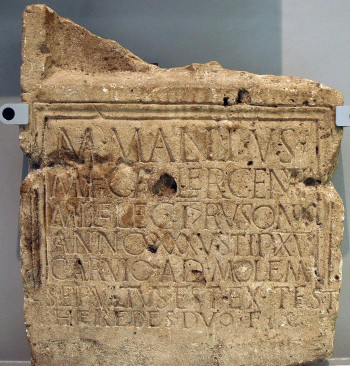 M·MALLIVS
M·F·GALER·GENV
MIL·LEG·I·RVSONIS
ANNO·XXXV·STIP·XVI
CARVIO·AD·MOLEM
SEPVLTVS·EST·EX·TEST
HEREDES·DVO·F·C